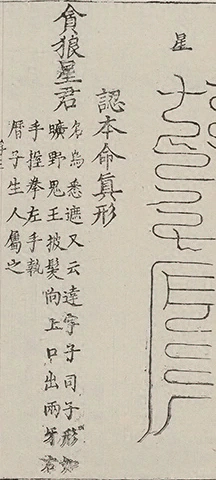 星
認本命眞形
貪狼星君
名烏悉遮又云達字子司子形如
曠野鬼王披髮向上口出兩牙右
手握拳左手執
曆子生人屬之